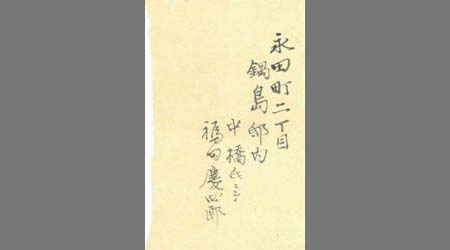 永田町二丁目
鍋島邸内
中橋氏ニテ
福田慶四郎